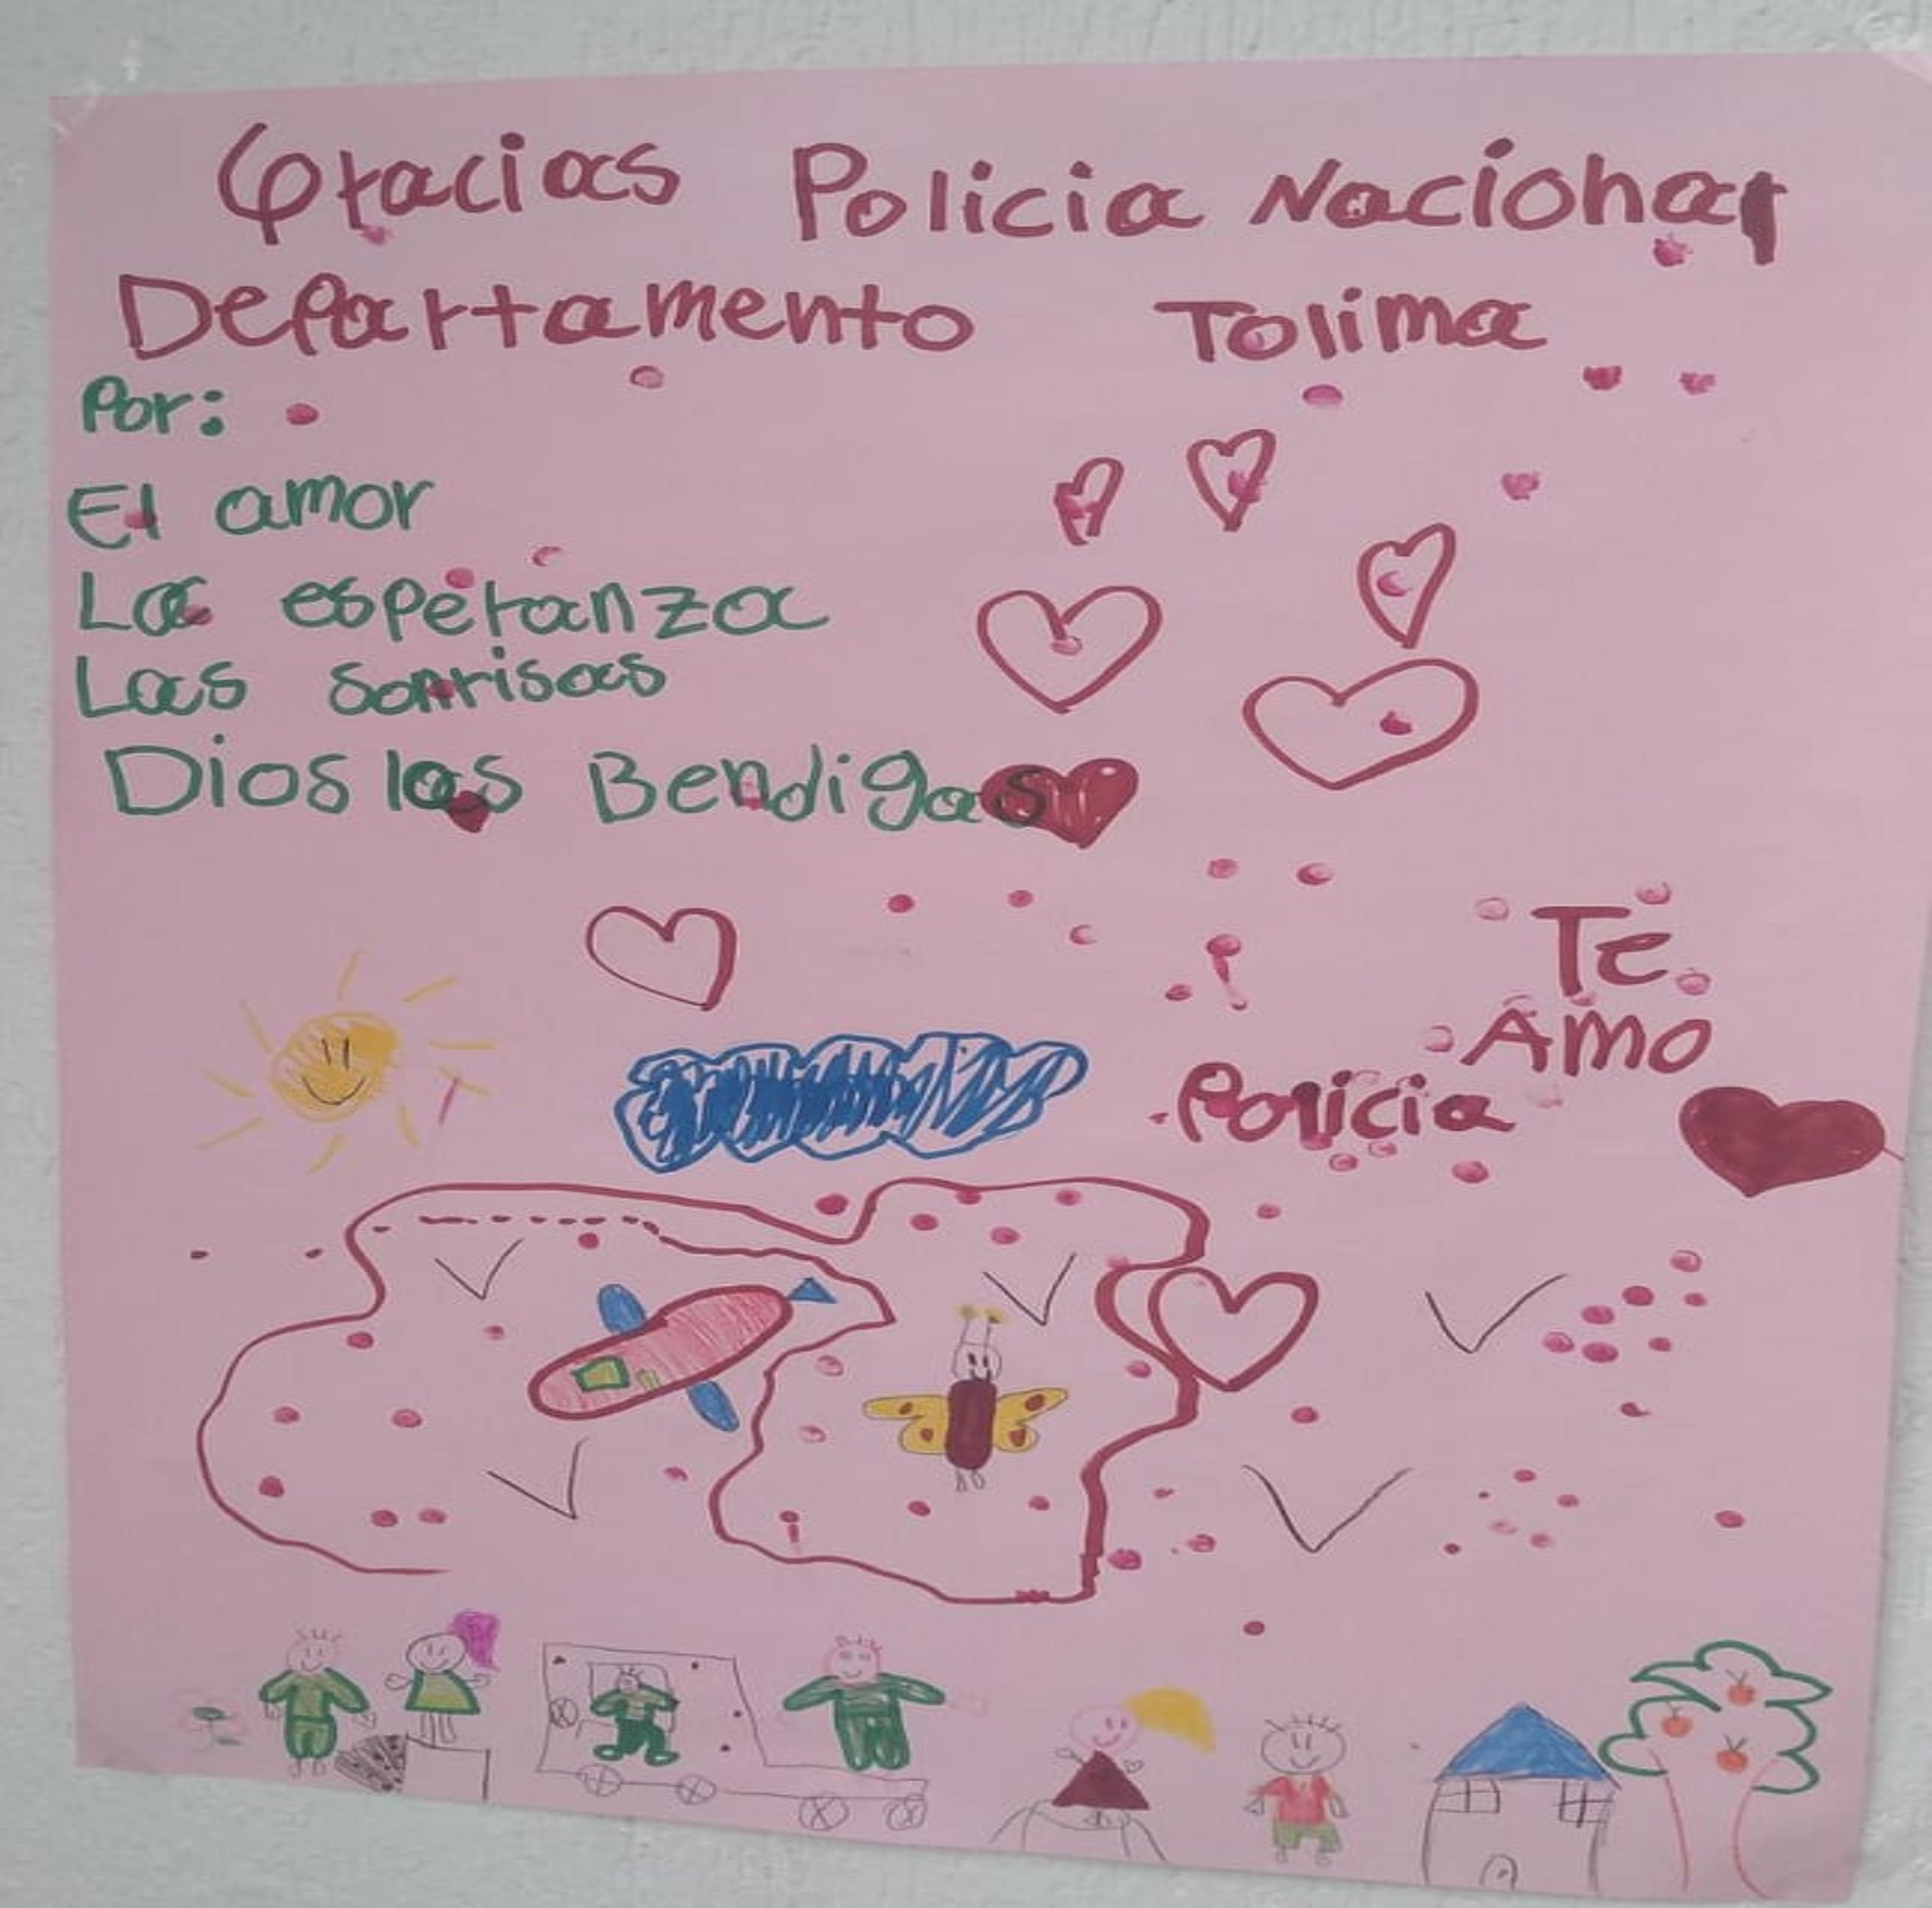 Gracias Policia Nacional
Departamento Tolima
Por:
El amor
La esperanza
Las sonrisas
Dios los Bendigas
Te
Amo
Policia